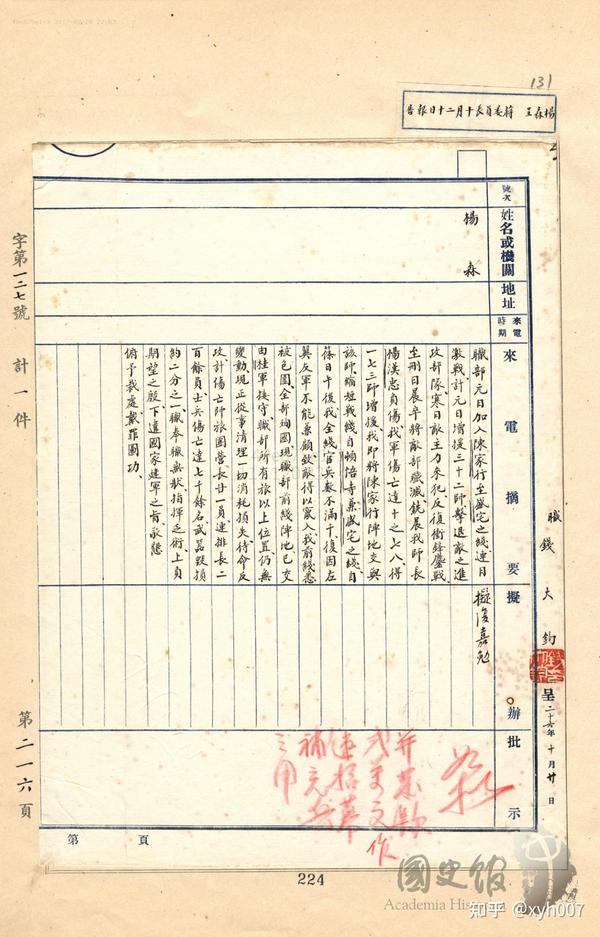 131
楊森呈 蔣委員長十月二十日報告
職錢大鈞 呈 二十六年十月廿日
號次 姓名或機關 地址 來電時期 來電摘要 擬辦 批示
楊森
職部元日加入陳家行至盛宅之綫連日
激戰計元日增援三十二師擊退敵之進
攻部隊寒日敵主力來犯反復衝鋒鏖戰
至刪日晨卒將敵部殲滅銑晨我師長
楊漢忠負傷我軍傷亡達十之七八得
一七三師增援我即將陳家行陣地交與
該師縮短戰綫自頓悟寺兼盛宅之綫自
篠日午後我全綫官兵數不滿千復因左
翼友軍不能兼顧致敵得以竄入我前綫悉
被包圍全部殉國現職部前綫陣地已交
由桂軍接守職部所有旅以上位置仍無
變動現正從事清理一切消耗損失待命反
攻計傷亡師旅團營長廿一員連排長二
百餘員士兵傷亡達七千餘名武器毀損
約二分之一職奉職無狀指揮乏術上負
期望之殷下違國家建軍之旨敬懇
俯予裁處戴罪圖功
擬復嘉勉
并发款
式萬文作
速招募
補充兵
之用
字第一二七號 計一件 第二一六頁
第 頁
224
國史館
Academia Historica
知乎 @xyh007